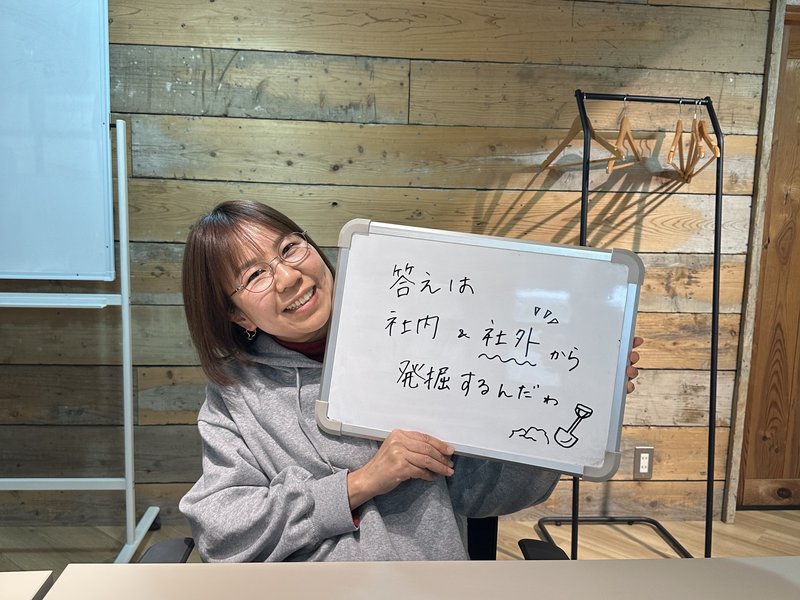 答えは
社内&社外から
発掘するんだわ